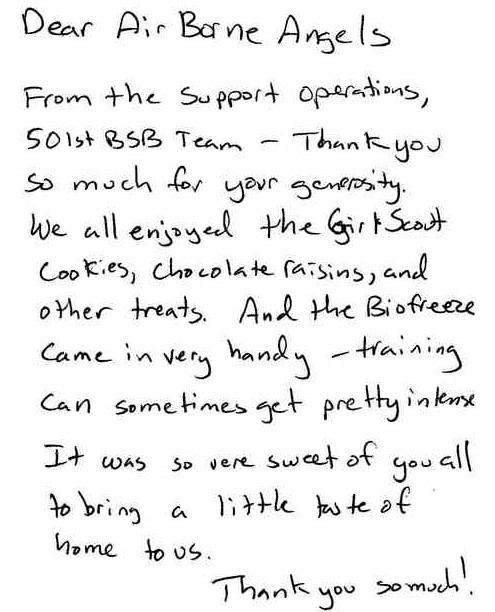 Dear Air Borne Angels
From the Support Operations,
501st BSB Team – Thank you
so much for your generosity.
We all enjoyed the Girl Scout
Cookies, chocolate raisins, and
other treats. And the Biofreeze
Came in very handy – training
Can sometimes get pretty intense
It was so vere sweet of you all
to bring a little taste of
home to us.
Thank you so much!